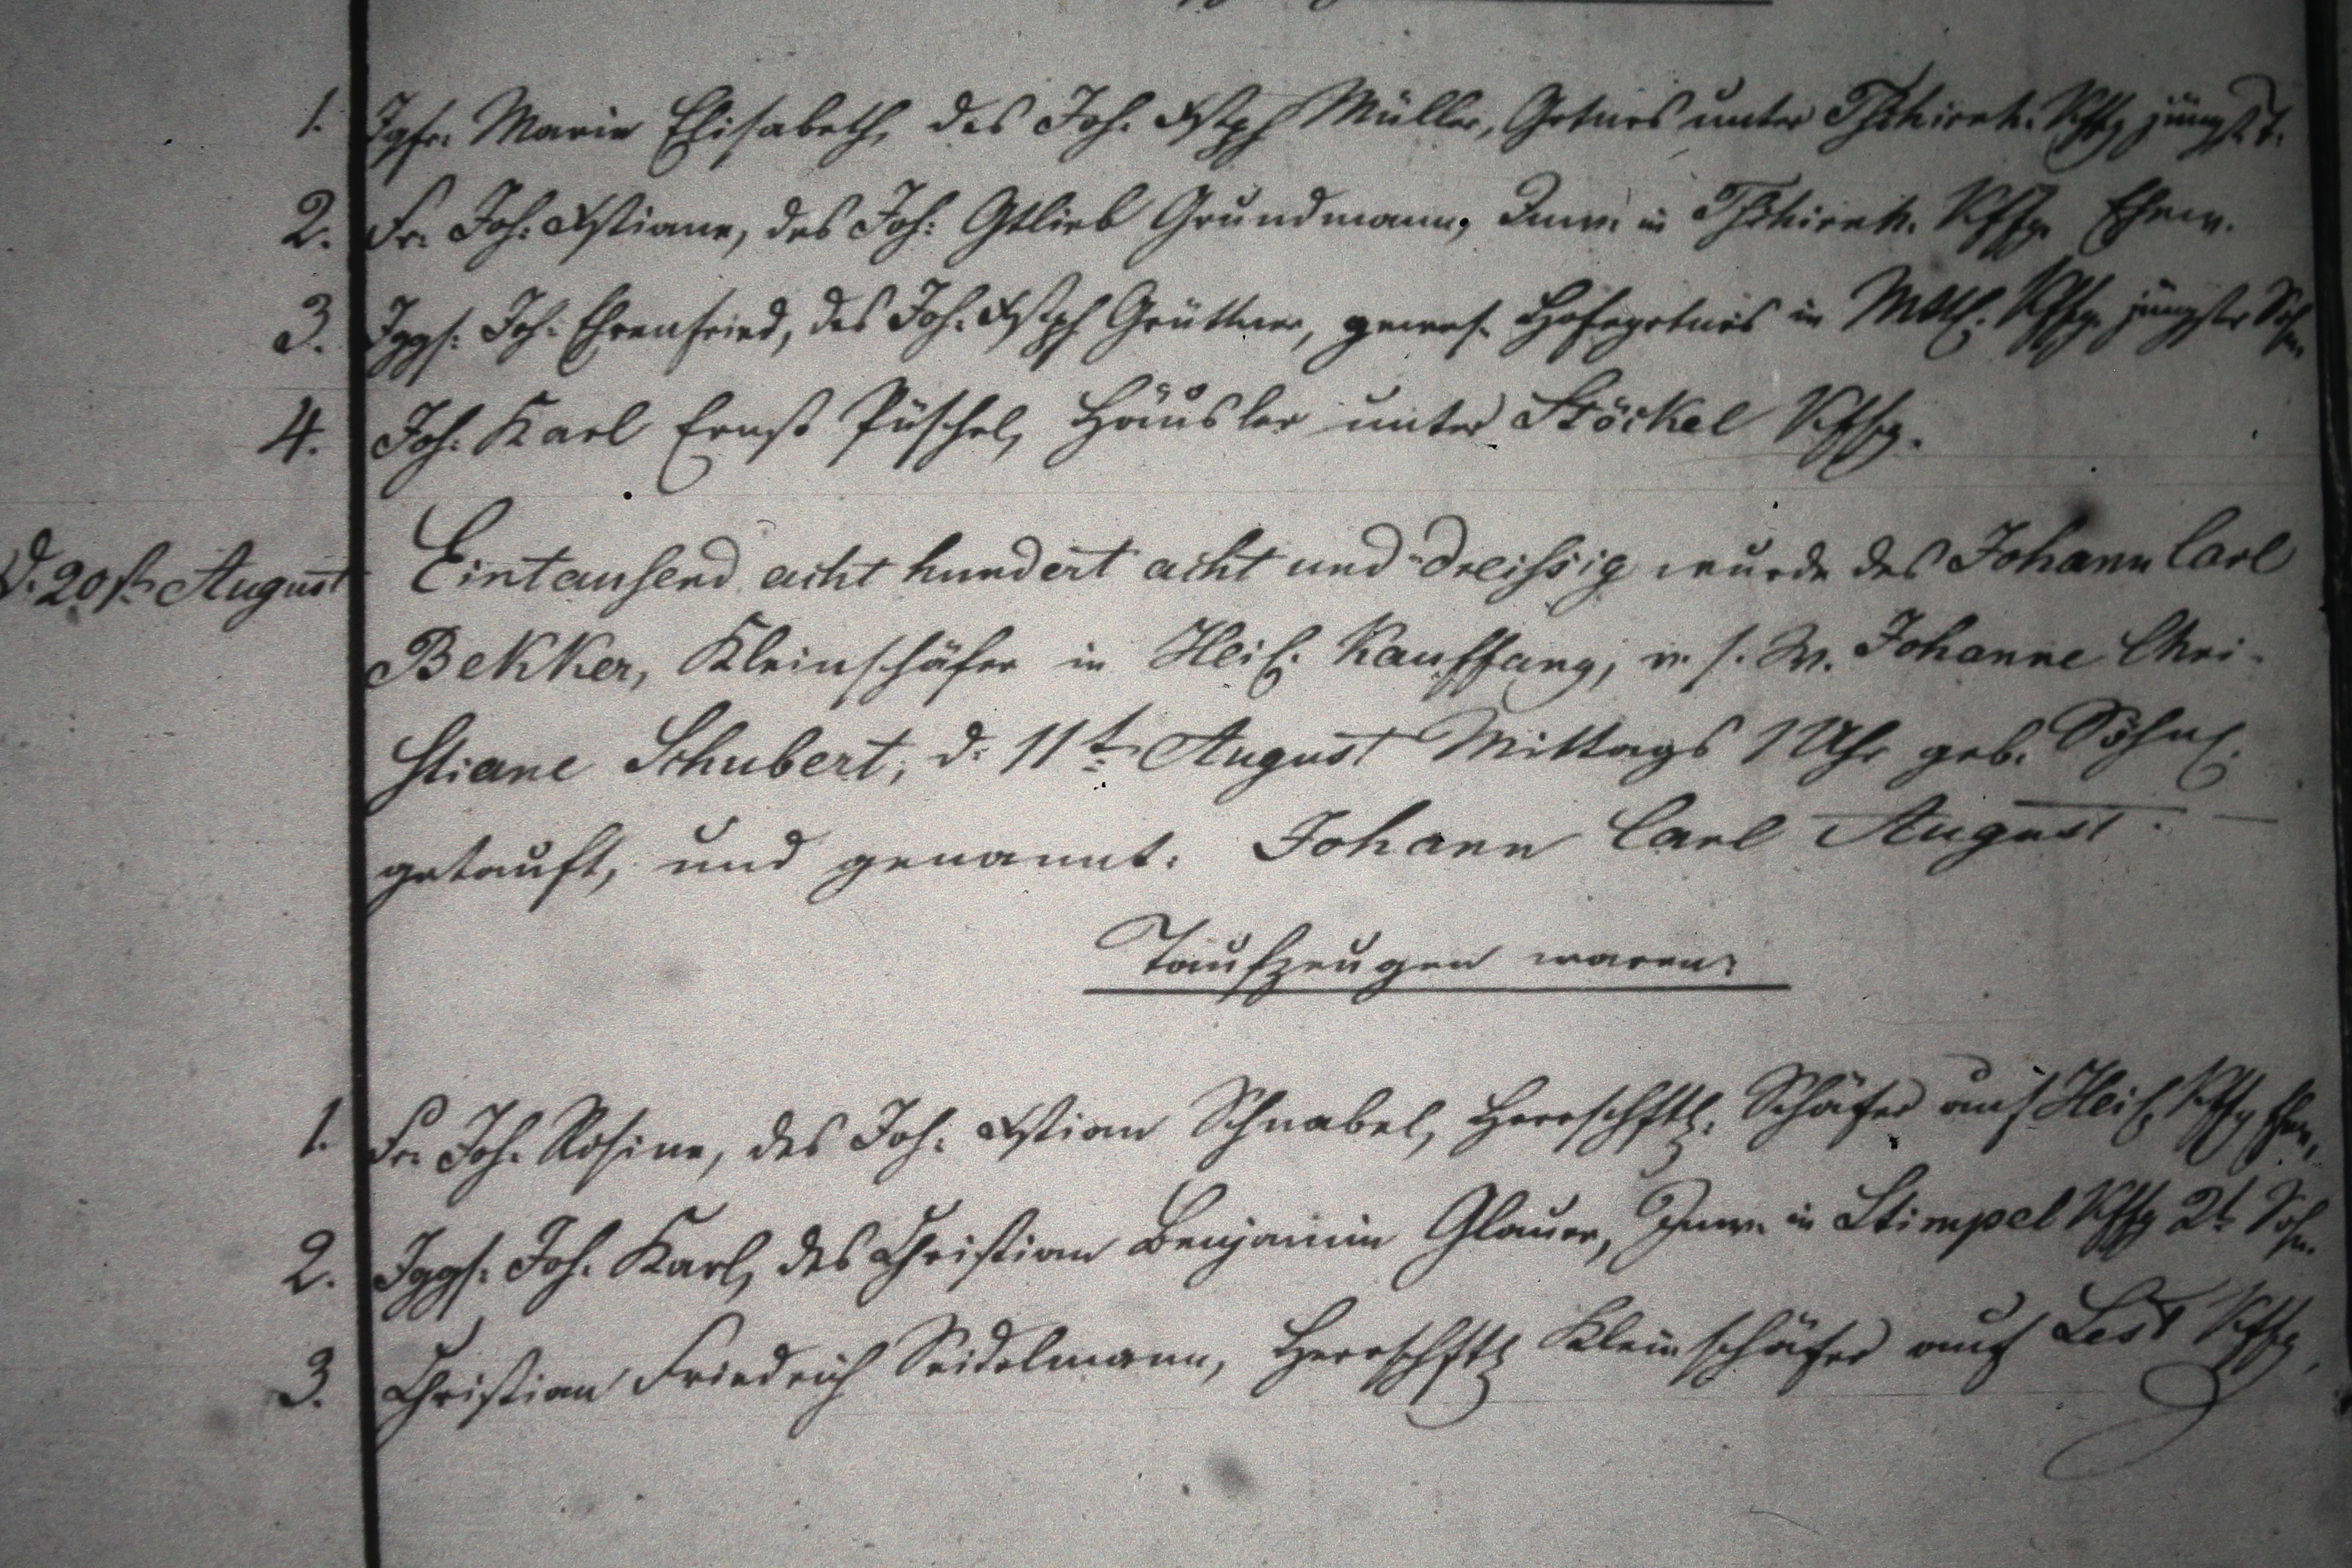 1. Jgfr. Marie Elisabeth, des Joh. Xstph Müller, Grtners unter Tschirnh. Kffg jüngst. T.
2. Fr. Joh: Xstiane, des Joh: Gtlieb Grundmann, Inw. in Tschirnh. Kffg. Ehew.
3. Jggs: Joh: Ehrenfried, des Joh. Xstph Grüttner, gewes. Hofegrtners in Kffg. jüngster Sohn
4. Joh: Karl Ernst Püschel, Häusler unter Stöckel Kffg.
d. 20st. August Eintausend acht hundert acht und dreissig wurde des Johann Carl
Bekker, Kleinschäfer in Heil. Kauffung, v. s. W. Johanne Chri-
stiane Schubert, d. 11t. August Mittags 1 Uhr geb. Söhnl.
getauft, und genannt: Johann Carl August.
Taufzeugen waren:
1. Fr. Joh. Rosine, des Joh: Xstian Schnabel, Herrschftl. Schäfer auf Heil. Kffg Ehew.
2. Jggs: Joh. Karl, des Christian Benjamin Glauer, Inw. in Stimpel Kffg 2t. Sohn
3. Christian Friedrich Seidelmann, Herrschftl Kleinschäfer auf Lest Kffg,